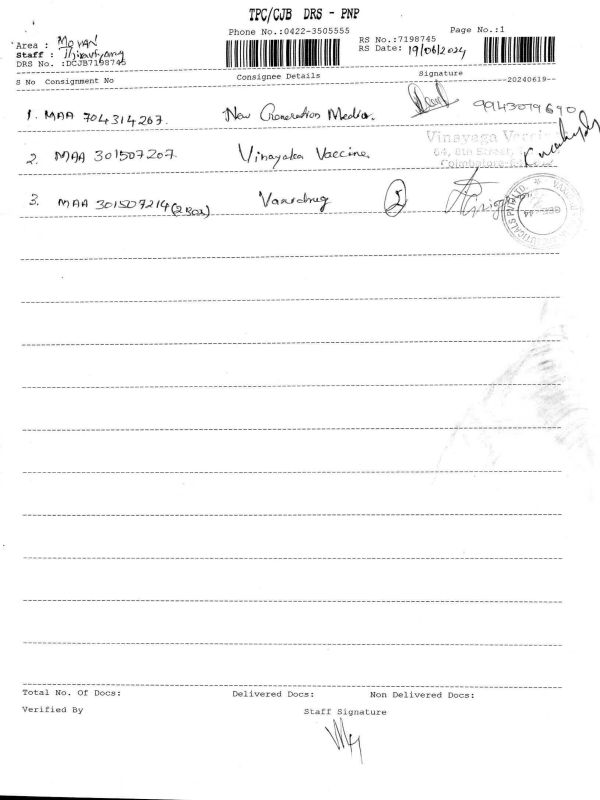 TPC/CJB DRS - PNP
Phone No.:0422-3505555
Page No.:1
Area : MOVAN
RS No.:7198745
Staff :
RS Date: 19/06/2024
DRS No. :DCJB7198745
S No Consignment No Consignee Details Signature 20240619
1. MAA 704314267. New Generation Media. 9943079690
Vinayaga
64, 8th Street,
Coimbatore
2. MAA 301507207. Vinayaka Vaccine.
3. MAA 301507214 (2 Box) Vaxxdrug 2
PVT LTD.
Total No. Of Docs: Delivered Docs: Non Delivered Docs:
Verified By Staff Signature